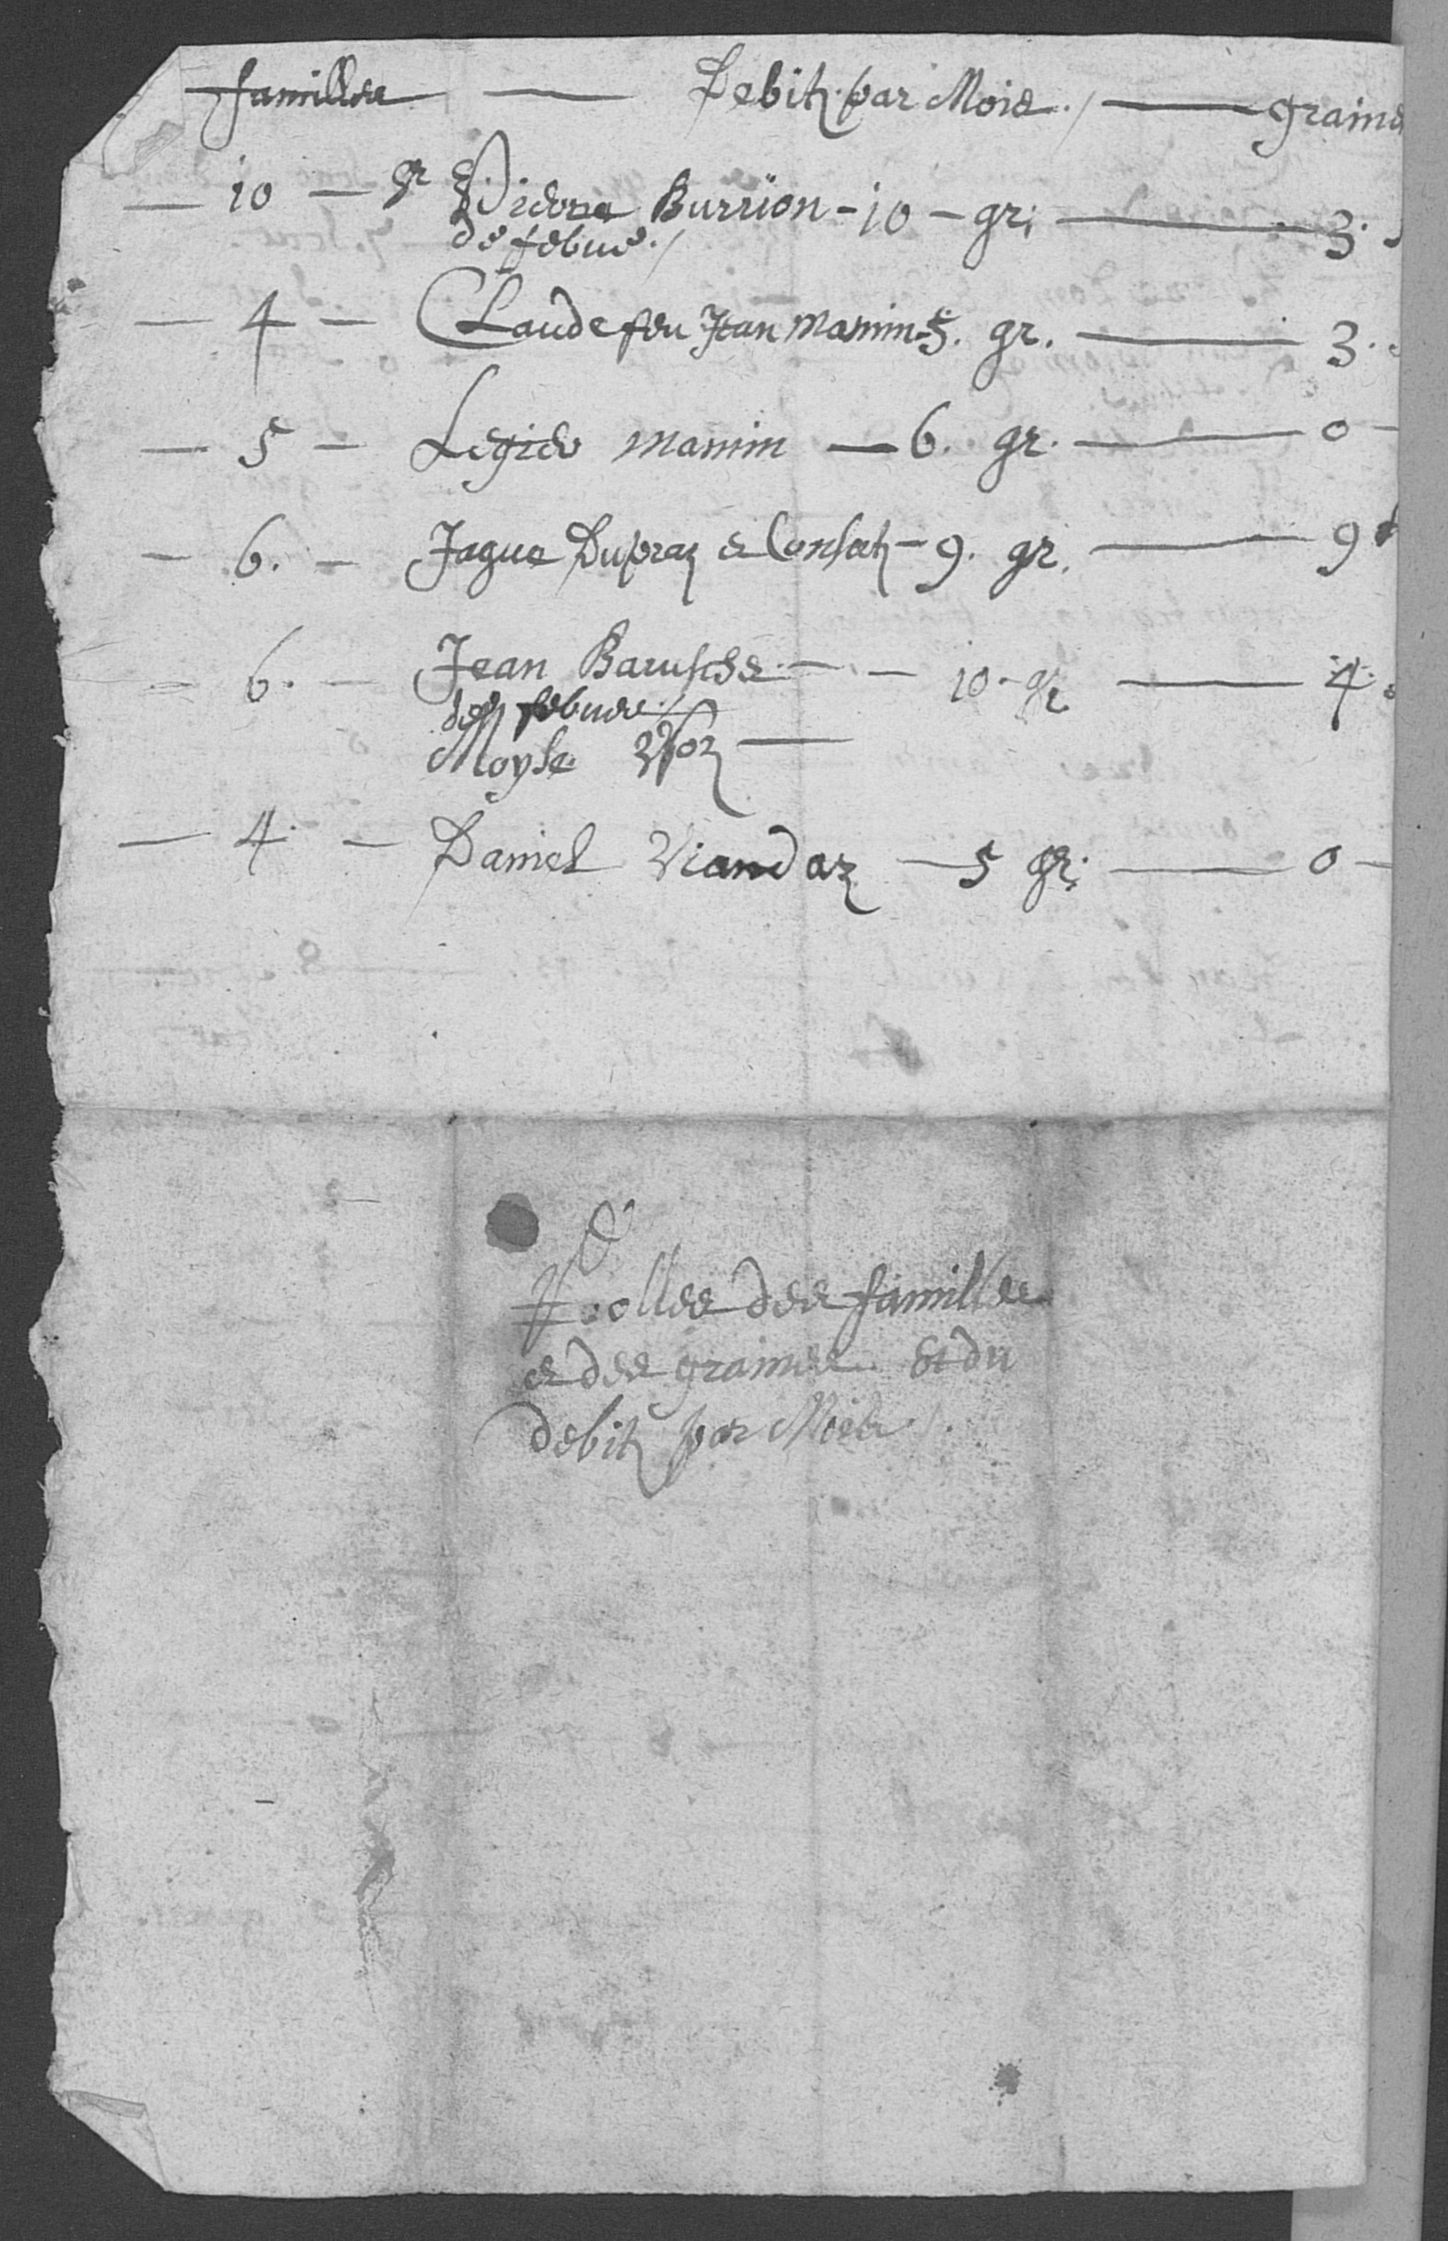 familles — Debitz par Mois. / — graines
— 10 — gr Pierre Burrion - 10 - gr; — 3.
de febue. /
— 4 — Claude feu Jean Mamin 5. gr. — 3.
— 5 — Legier Mamin — 6. gr. — 0 —
— 6. — Jaque Dupraz et Consortz - 9. gr. — 9
— 6. — Jean Barusche — 10 - gr — 4.
des febues. /
Moyse —
— 4. — Daniel Viandaz — 5 gr; — 0 —
Rolles des familles
et des graines et du
debitz par Mois /.